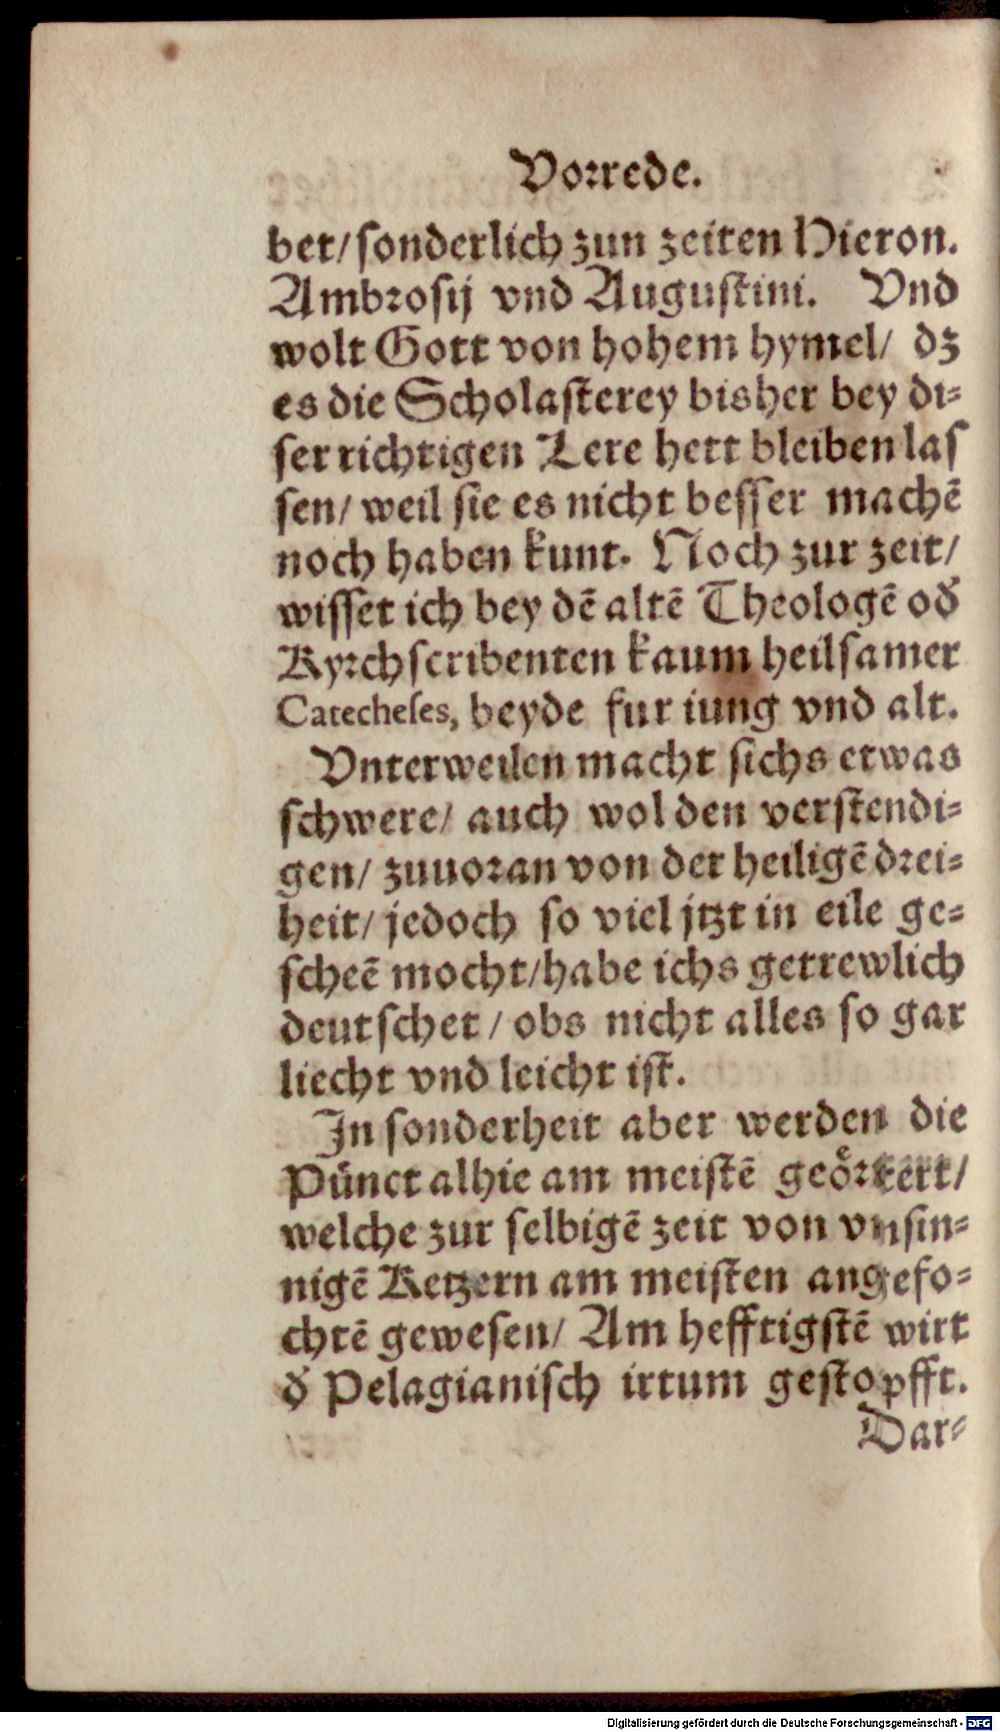 Vorrede.
bet/ sonderlich zun zeiten Hieron.
Ambrosij vnd Augustini. Vnd
wolt Gott von hohem hymel/ dz
es die Scholasterey bisher bey di⸗
ser richtigen Lere hett bleiben las
sen/ weil sie es nicht besser machē
noch haben kunt. Noch zur zeit/
wisset ich bey dē altē Theologē od̕
Kyrchscribenten kaum heilsamer
Catecheses, beyde fur iung vnd alt.
Vnterweilen macht sichs etwas
schwere/ auch wol den verstendi⸗
gen/ zuuoran von der heiligē drei⸗
heit/ jedoch so viel jtzt in eile ge⸗
scheē mocht/ habe ichs getrewlich
deutschet/ obs nicht alles so gar
liecht vnd leicht ist.
In sonderheit aber werden die
Pünct alhie am meistē geörtert/
welche zur selbigē zeit von vnsin⸗
nigē Ketzern am meisten angefo⸗
chtē gewesen/ Am hefftigstē wirt
d̕ Pelagianisch irtum gestopfft.
Dar⸗
Digitalisierung gefördert durch die Deutsche Forschungsgemeinschaft - DFG